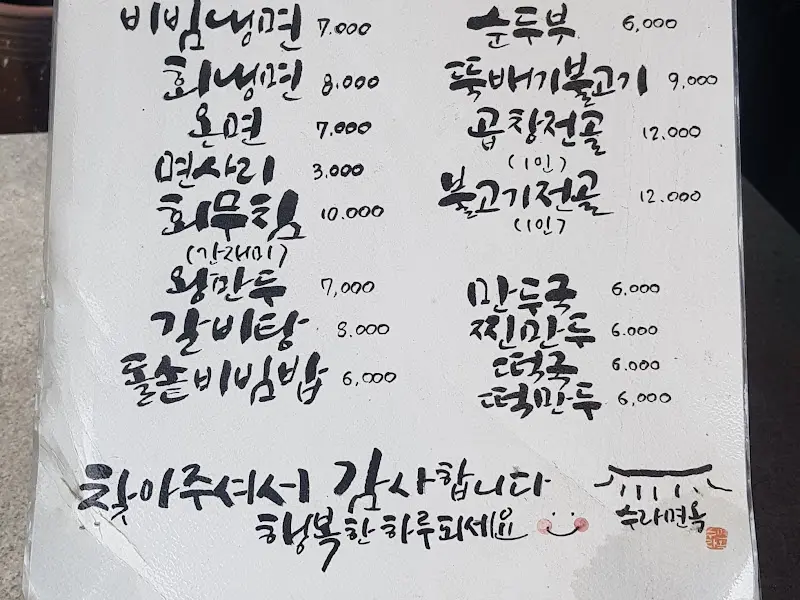 비빔냉면 7.000
회냉면 8.000
온면 7.000
면사리 3.000
회무침 10.000
(간재미)
왕만두 7,000
갈비탕 8.000
돌솥비빔밥 6,000
순두부 6,000
뚝배기불고기 9,000
곱창전골 12,000
(1인)
불고기전골 12.000
(1인)
만두국 6.000
찐만두 6.000
떡국 6.000
떡만두 6,000
찾아주셔서 감사합니다
행복한하루되세요
수라면옥